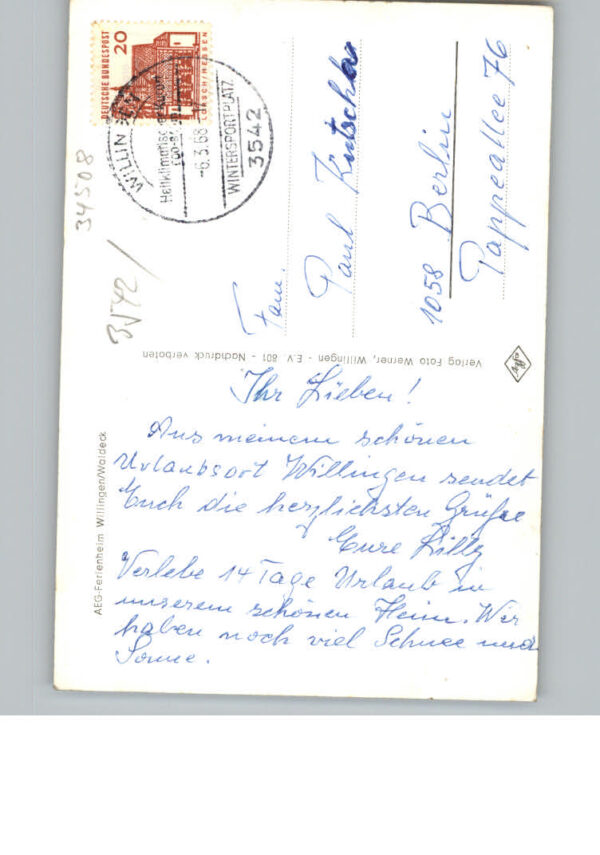 DEUTSCHE BUNDESPOST
20
LORSCH/HESSEN
WILLINGEN
Heilklimatischer Kurort
-6.3.68
WINTERSPORTPLATZ
3542
34508
Fam.
Paul Kutschka
1058 Berlin
Pappeallee 76
Verlag Foto Werner, Willingen - E.V. 801 - Nachdruck verboten
AEG-Ferienheim Willingen/Waldeck
Ihr Lieben!
Aus meinem schönen
Urlaubsort Willingen sendet
Euch die herzlichsten Grüße
Eure Lilly
Verlebe 14 Tage Urlaub in
unserem schönen Heim. Wir
haben noch viel Schnee und
Sonne.